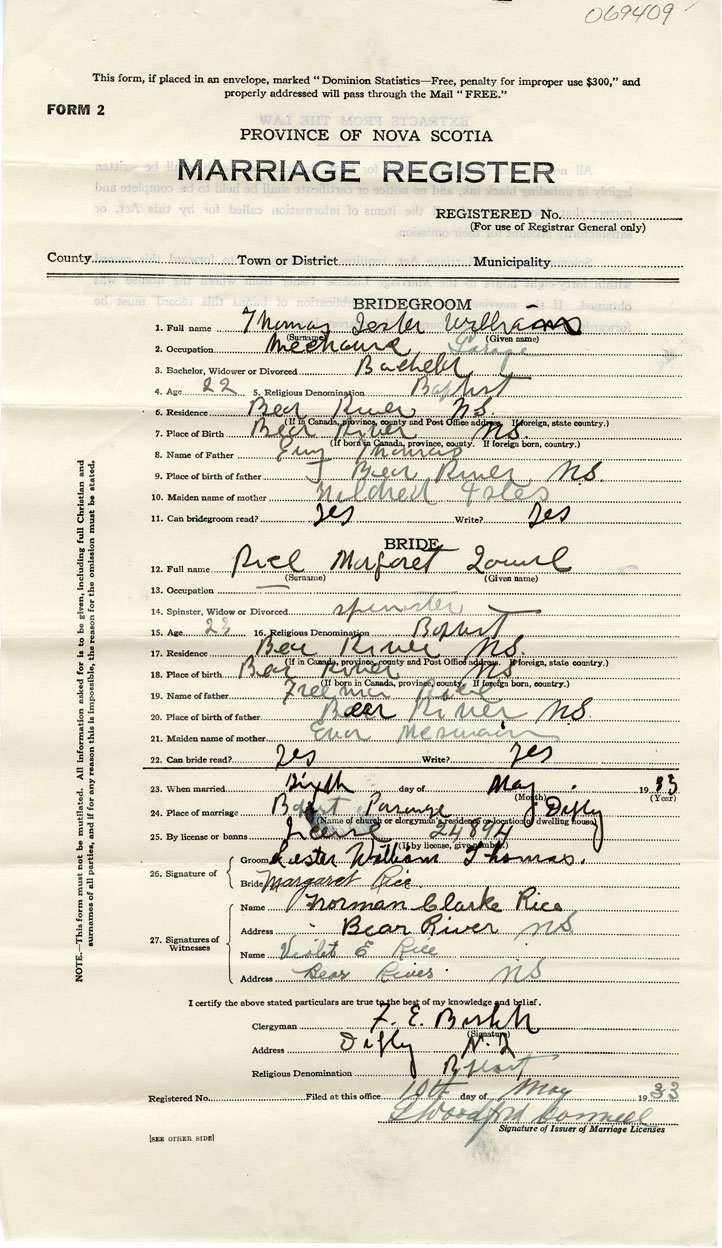 069409
This form, if placed in an envelope, marked "Dominion Statistics—Free, penalty for improper use $300," and
properly addressed will pass through the Mail "FREE."
FORM 2
PROVINCE OF NOVA SCOTIA
MARRIAGE REGISTER
REGISTERED No.
(For use of Registrar General only)
County Town or District Municipality
BRIDEGROOM
1. Full name Thomas Lester William
(Surname) (Given name)
2. Occupation Mechanic Garage
3. Bachelor, Widower or Divorced Bachelor
4. Age 22 5. Religious Denomination Baptist
6. Residence Bear River N.S.
(If in Canada, province, county and Post Office address. If foreign, state country.)
7. Place of Birth Bear River N.S.
(If born in Canada, province, county. If foreign born, country.)
8. Name of Father Thomas
9. Place of birth of father Bear River N.S.
10. Maiden name of mother Mildred
11. Can bridegroom read? Yes Write? Yes
BRIDE
12. Full name Rice Margaret
(Surname) (Given name)
13. Occupation —
14. Spinster, Widow or Divorced Spinster
15. Age 23 16. Religious Denomination Baptist
17. Residence Bear River N.S.
(If in Canada, province, county and Post Office address. If foreign, state country.)
18. Place of Birth Bear River N.S.
(If born in Canada, province, county. If foreign born, country.)
19. Name of father Rice
20. Place of birth of father Bear River N.S.
21. Maiden name of mother
22. Can bride read? Yes Write? Yes
23. When married day of May 1933
(Month) (Year)
24. Place of marriage Baptist Parsonage Digby
(Name of church or clergyman's residence or location of dwelling house)
25. By license or banns License 24894
(If by license, give number)
26. Signature of
Groom Lester William Thomas.
Bride Margaret Rice.
27. Signatures of Witnesses
Name Norman Clarke Rice
Address Bear River NS
Name Violet E Rice
Address Bear River NS
I certify the above stated particulars are true to the best of my knowledge and belief.
Clergyman F. E.
(Signature)
Address Digby N.S.
Religious Denomination Baptist
Registered No. Filed at this office 10th day of May 1933
Signature of Issuer of Marriage Licenses
[SEE OTHER SIDE]
NOTE.—This form must not be mutilated. All information asked for is to be given, including full Christian and
surnames of all parties, and if for any reason this is impossible, the reason for the omission must be stated.